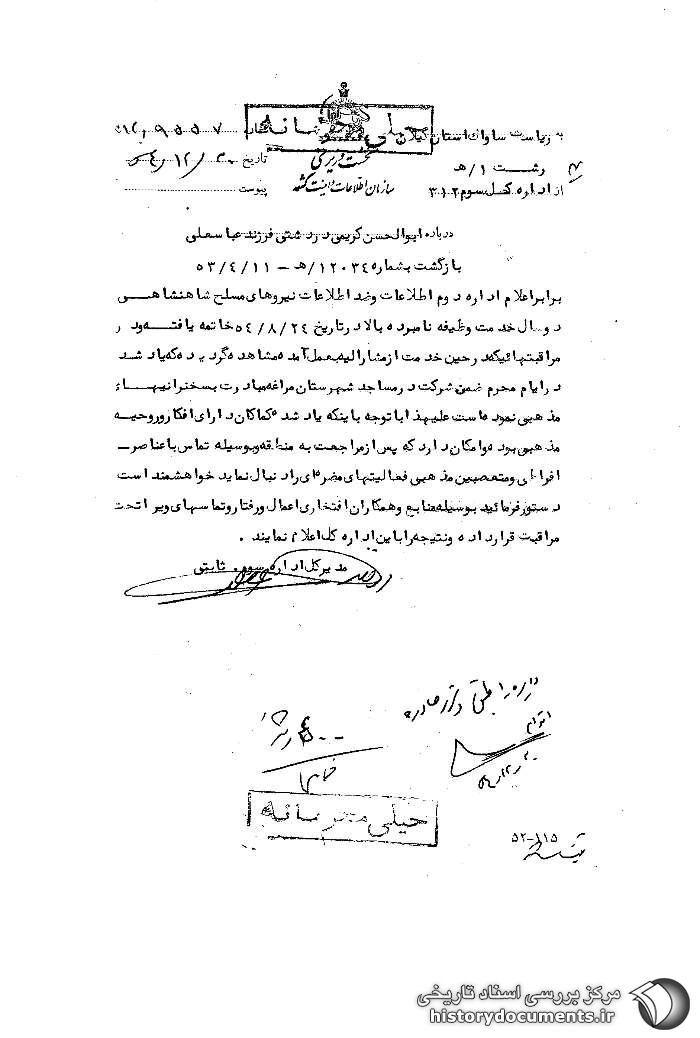 خیلی محرمانه
به ریاست ساواک استان گیلان
رشت ۱/هـ
از اداره کل سوم ۳۱۲
نخست وزیری
سازمان اطلاعات و امنیت کشور
شماره
تاریخ ۵۴/۱۲/۲۰
پیوست
درباره ابوالحسن کریمی دررشتی فرزند عباسعلی
بازگشت بشماره ۱۲۰۳۴/هـ – ۵۳/۴/۱۱
برابر اعلام اداره دوم اطلاعات وضد اطلاعات نیروهای مسلح شاهنشاهی
دوسال خدمت وظیفه نامبرده بالا در تاریخ ۵۴/۸/۲۴ خاتمه یافته و در
مراقبتهائیکه در حین خدمت از مشارالیه بعمل آمده مشاهده گردیده که یاد شده
در ایام محرم ضمن شرکت در مساجد شهرستان مراغه مبادرت بسخنرانیهای
مذهبی نموده است علیهذا باتوجه باینکه یاد شده کماکان دارای افکار وروحیه
مذهبی بوده وامکان دارد که پس از مراجعت به منطقه وبوسیله تماس با عناصر
افراطی ومتعصبین مذهبی فعالیتهای مضره ای را دنبال نماید خواهشمند است
دستور فرمائید بوسیله منابع وهمکاران افتخاری اعمال ورفتار وتماسهای ویرا تحت
مراقبت قرار داده ونتیجه را باین اداره کل اعلام نمایند .
مدیرکل اداره سوم. ثابتی
خیلی محرمانه
۵۲-۱۱۵
مرکز بررسی اسناد تاریخی
historydocuments.ir